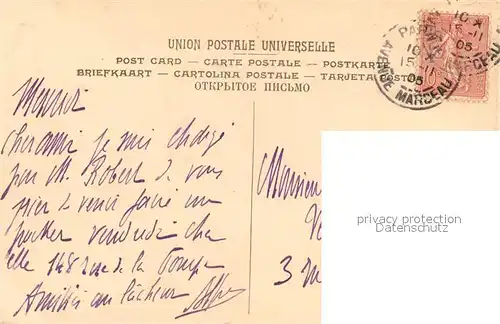 UNION POSTALE UNIVERSELLE
POST CARD — CARTE POSTALE — POSTKARTE
BRIEFKAART — CARTOLINA POSTALE — TARJETA POSTAL
ОТКРЫТОЕ ПИСЬМО
PARIS
10
15-11
05
AVENUE MARCEAU
10
-11
05
cher ami je suis chargé
par M. Robert de vous
prier de venir faire un
poker vendredi chez
elle 148 rue de la Pompe
Amitiés au
Monsieur
3
privacy protection
Datenschutz